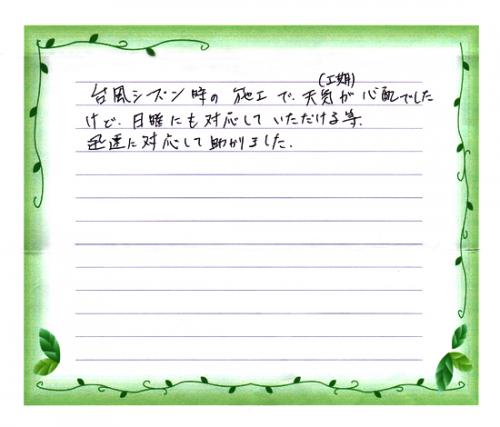 (工期)
台風シーズン時の施工で、天気が心配でした
けど、日曜にも対応していただける等、
迅速に対応して助かりました。